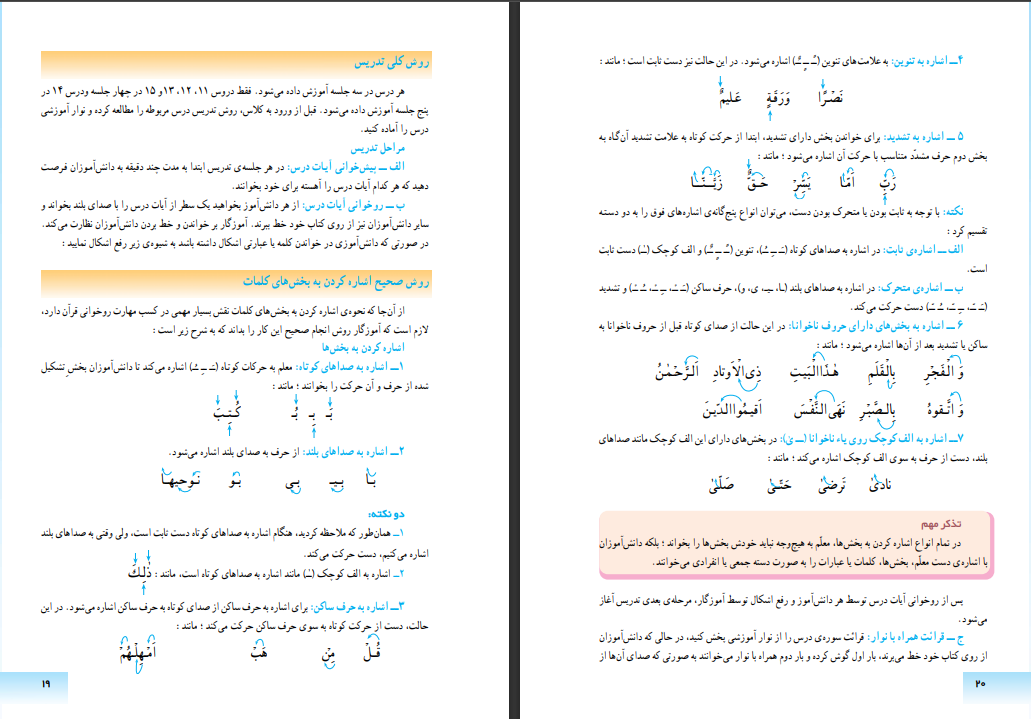 روش کلی تدریس
هر درس در سه جلسه آموزش داده می‌شود. فقط دروس ۱۱، ۱۲، ۱۳و ۱۵ در چهار جلسه ودرس ۱۴ در
پنج جلسه آموزش داده می‌شود. قبل از ورود به کلاس، روش تدریس درس مربوطه را مطالعه کرده و نوار آموزشی
درس را آماده کنید.
مراحل تدریس
الف ــ پیش‌خوانی آیات درس: در هر جلسه‌ی تدریس ابتدا به مدت چند دقیقه به دانش‌آموزان فرصت
دهید که هر کدام آیات درس را آهسته برای خود بخوانند.
ب ــ روخوانی آیات درس: از هر دانش‌آموز بخواهید یک سطر از آیات درس را با صدای بلند بخواند و
سایر دانش‌آموزان نیز از روی کتاب خود خط ببرند. آموزگار بر خواندن و خط بردن دانش‌آموزان نظارت می‌کند.
در صورتی که دانش‌آموزی در خواندن کلمه یا عبارتی اشکال داشته باشد به شیوه‌ی زیر رفع اشکال نمایید :
روش صحیح اشاره کردن به بخش‌های کلمات
از آن‌جا که نحوه‌ی اشاره کردن به بخش‌های کلمات نقش بسیار مهمی در کسب مهارت روخوانی قرآن دارد،
لازم است که آموزگار روش انجام صحیح این کار را بداند که به شرح زیر است :
اشاره کردن به بخش‌ها
۱ــ اشاره به صداهای کوتاه: معلم به حرکات کوتاه (ـَـ ـِـ ـُـ) اشاره می‌کند تا دانش‌آموزان بخشِ تشکیل
شده از حرف و آن حرکت را بخوانند ؛ مانند :
بَـ بِـ بُـ کُتِبَ
۲ــ اشاره به صداهای بلند: از حرف به صدای بلند اشاره می‌شود.
بـا بـیـ بی بو نوحیها
دو نکته:
۱ــ همان‌طور که ملاحظه کردید، هنگام اشاره به صداهای کوتاه دست ثابت است، ولی وقتی به صداهای بلند
اشاره می‌کنیم، دست حرکت می‌کند.
۲ــ اشاره به الف کوچک (ـٰـ) مانند اشاره به صداهای کوتاه است، مانند : ذٰلِکَ
۳ــ اشاره به حرف ساکن: برای اشاره به حرف ساکن از صدای کوتاه به حرف ساکن اشاره می‌شود. در این
حالت، دست از حرکت کوتاه به سوی حرف ساکن حرکت می‌کند ؛ مانند :
قُـلْ مِنْ هَبْ اَمْهِلْهُمْ
۱۹
۴ــ اشاره به تنوین: به علامت‌های تنوین (ـًـ ـٍـ ـٌـ) اشاره می‌شود. در این حالت نیز دست ثابت است ؛ مانند :
نَصْرًا وَرَقَةٍ عَلیمٌ
۵ ــ اشاره به تشدید: برای خواندن بخش دارای تشدید، ابتدا از حرکت کوتاه به علامت تشدید آن‌گاه به
بخش دوم حرف مشدّد متناسب با حرکت آن اشاره می‌شود ؛ مانند :
رَبِّ اَمّا یَسِّرْ حَقٌّ رَبَّنا
نکته: با توجه به ثابت بودن یا متحرک بودن دست، می‌توان انواع پنج‌گانه‌ی اشاره‌های فوق را به دو دسته
تقسیم کرد :
الف ــ اشاره‌ی ثابت: در اشاره به صداهای کوتاه (ـَـ ـِـ ـُـ)، تنوین (ـًـ ـٍـ ـٌـ) و الف کوچک (ـٰـ) دست ثابت
است.
ب ــ اشاره‌ی متحرک: در اشاره به صداهای بلند (ـا، ـیـ ی، و)، حرف ساکن و تشدید
دست حرکت می‌کند.
۶ ــ اشاره به بخش‌های دارای حروف ناخوانا: در این حالت از صدای کوتاه قبل از حروف ناخوانا به
ساکن یا تشدید بعد از آن‌ها اشاره می‌شود ؛ مانند :
وَ الْفَجْرِ بِالْقَلَمِ هٰذَا الْبَیتِ ذِی الْاَوتادِ اَلرَّحْمٰنُ
وَ اتَّقوهُ بِالصَّبْرِ نَهَی النَّفْسَ اَقیمُوا الدّینَ
۷ــ اشاره به الف کوچک روی یاء ناخوانا (ــ یٰ): در بخش‌های دارای این الف کوچک مانند صداهای
بلند، دست از حرف به سوی الف کوچک اشاره می‌کند ؛ مانند :
نادیٰ تَرضیٰ حَتّیٰ صَلّیٰ
تذکر مهم
در تمام انواع اشاره کردن به بخش‌ها، معلّم به هیچ‌وجه نباید خودش بخش‌ها را بخواند ؛ بلکه دانش‌آموزان
با اشاره‌ی دست معلّم، بخش‌ها، کلمات یا عبارات را به صورت دسته جمعی یا انفرادی می‌خوانند.
پس از روخوانی آیات درس توسط هر دانش‌آموز و رفع اشکال توسط آموزگار، مرحله‌ی بعدی تدریس آغاز
می‌شود.
ج ــ قرائت همراه با نوار: قرائت سوره‌ی درس را از نوار آموزشی پخش کنید، در حالی که دانش‌آموزان
از روی کتاب خود خط می‌برند، بار اول گوش کرده و بار دوم همراه با نوار می‌خوانند به صورتی که صدای آن‌ها از
۲۰